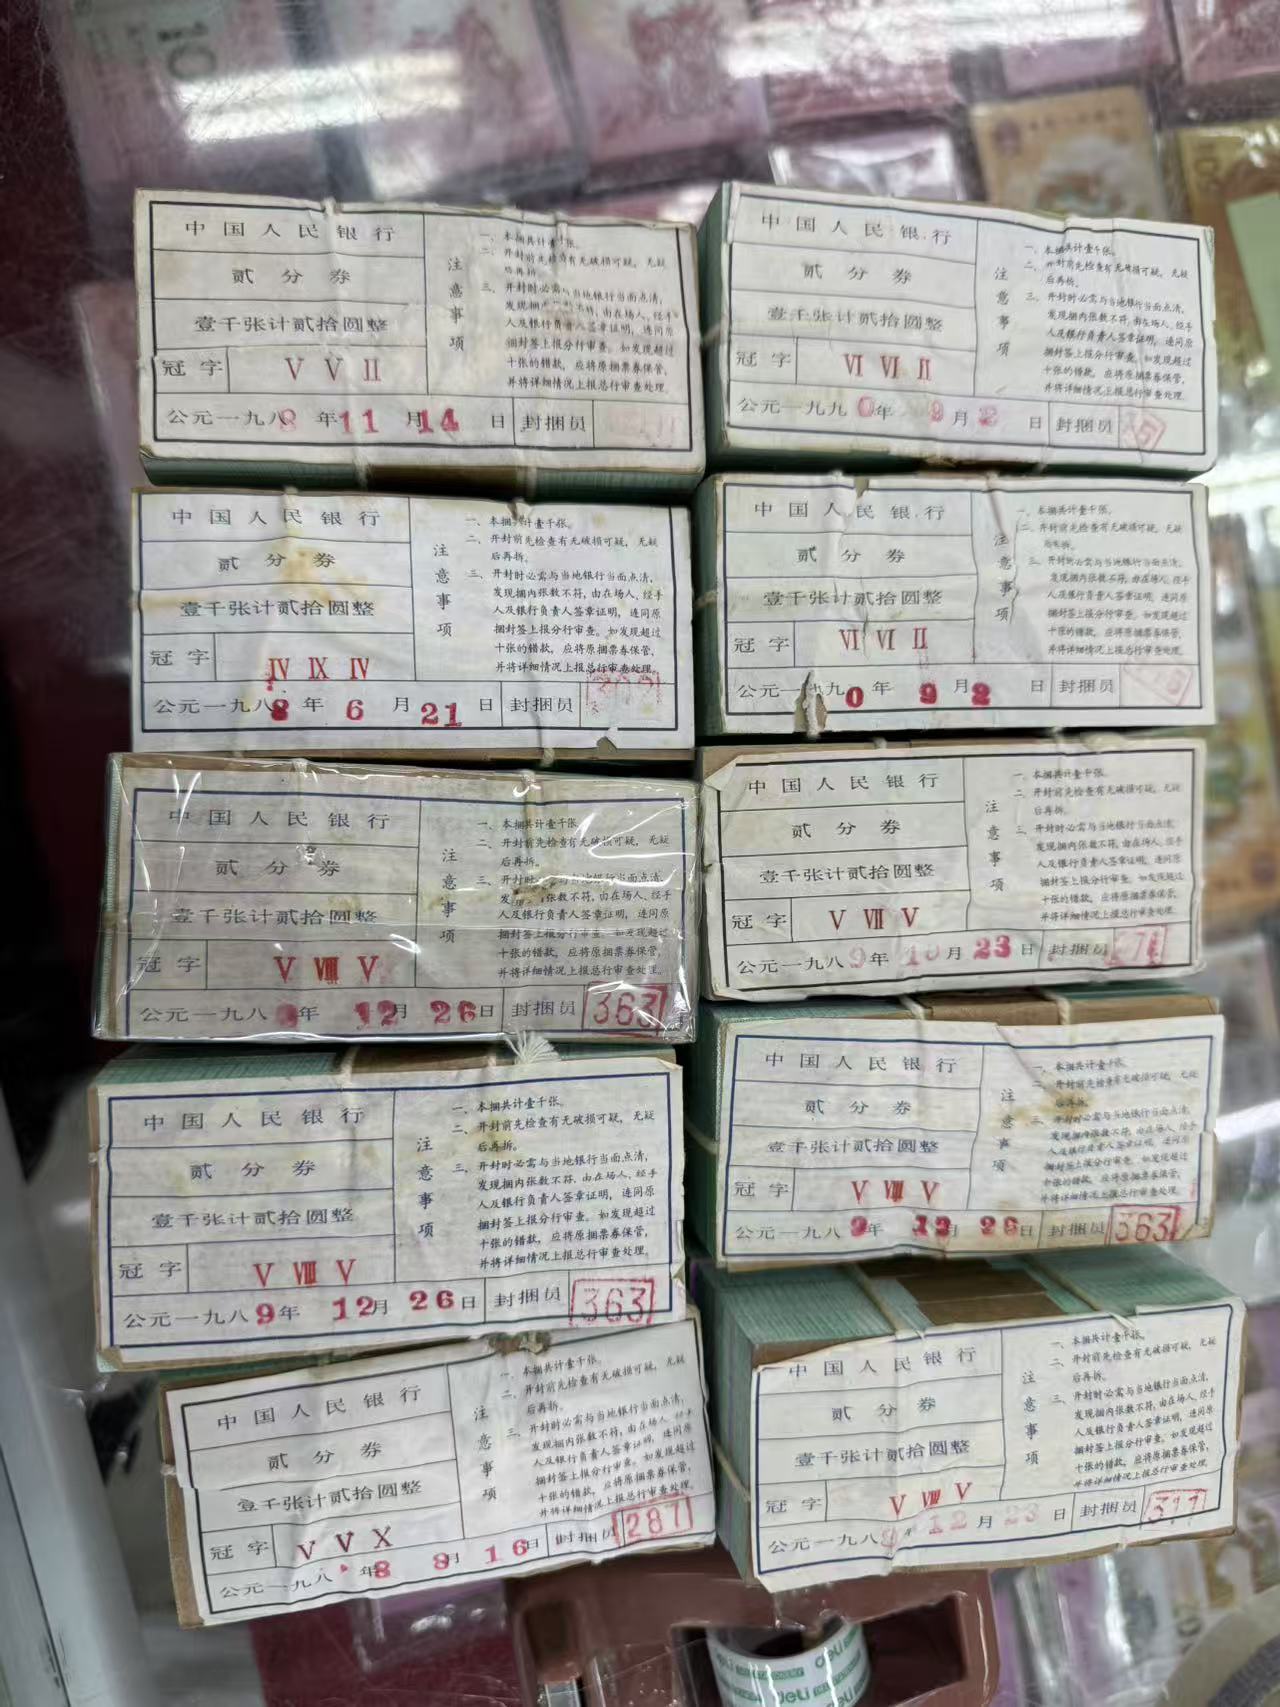 中国人民银行
贰分券
壹千张计贰拾圆整
冠字 V V II
公元一九八 年 11 月 14 日 封捆员
注意事项
一、本捆共计壹千张。
二、开封前先检查有无破损可疑，无疑
后再拆。
三、开封时必需与当地银行当面点清，
发现捆内张数不符，由在场人、经手
人及银行负责人签章证明，连同原
捆封签上报分行审查。如发现超过
十张的错款，应将原捆票券保管，
并将详细情况上报总行审查处理。
中国人民银行
贰分券
壹千张计贰拾圆整
冠字 VI VI II
公元一九九0年 9月2日 封捆员
注意事项
一、本捆共计壹千张。
二、开封前先检查有无破损可疑，无疑
后再拆。
三、开封时必需与当地银行当面点清，
发现捆内张数不符，由在场人、经手
人及银行负责人签章证明，连同原
捆封签上报分行审查。如发现超过
十张的错款，应将原捆票券保管，
并将详细情况上报总行审查处理。
中国人民银行
贰分券
壹千张计贰拾圆整
冠字 IV IX IV
公元一九八8年 6月21日 封捆员
注意事项
一、本捆共计壹千张。
二、开封前先检查有无破损可疑，无疑
后再拆。
三、开封时必需与当地银行当面点清，
发现捆内张数不符，由在场人、经手
人及银行负责人签章证明，连同原
捆封签上报分行审查。如发现超过
十张的错款，应将原捆票券保管，
并将详细情况上报总行审查处理。
中国人民银行
贰分券
壹千张计贰拾圆整
冠字 VI VI II
公元一九九0年 9月2日 封捆员
注意事项
一、本捆共计壹千张。
二、开封前先检查有无破损可疑，无疑
后再拆。
三、开封时必需与当地银行当面点清，
发现捆内张数不符，由在场人、经手
人及银行负责人签章证明，连同原
捆封签上报分行审查。如发现超过
十张的错款，应将原捆票券保管，
并将详细情况上报总行审查处理。
中国人民银行
贰分券
壹千张计贰拾圆整
冠字 V VIII V
公元一九八 年 12月26日 封捆员 363
注意事项
一、本捆共计壹千张
二、开封前先检查有无破损可疑，无疑
后再拆。
三、开封时必需与当地银行当面点清，
发现捆内张数不符，由在场人、经手
人及银行负责人签章证明，连同原
捆封签上报分行审查。如发现超过
十张的错款，应将原捆票券保管，
并将详细情况上报总行审查处理。
中国人民银行
贰分券
壹千张计贰拾圆整
冠字 V VII V
公元一九八9年 10月23日 封捆员
注意事项
一、本捆共计壹千张。
二、开封前先检查有无破损可疑，无疑
后再拆。
三、开封时必需与当地银行当面点清，
发现捆内张数不符，由在场人、经手
人及银行负责人签章证明，连同原
捆封签上报分行审查。如发现超过
十张的错款，应将原捆票券保管，
并将详细情况上报总行审查处理。
中国人民银行
贰分券
壹千张计贰拾圆整
冠字 V VIII V
公元一九八9年 12月26日 封捆员 363
注意事项
一、本捆共计壹千张。
二、开封前先检查有无破损可疑，无疑
后再拆。
三、开封时必需与当地银行当面点清，
发现捆内张数不符，由在场人、经手
人及银行负责人签章证明，连同原
捆封签上报分行审查。如发现超过
十张的错款，应将原捆票券保管，
并将详细情况上报总行审查处理。
中国人民银行
贰分券
壹千张计贰拾圆整
冠字 V VIII V
公元一九八9年 12月26日 封捆员 363
注意事项
一、本捆共计壹千张。
二、开封前先检查有无破损可疑，无疑
后再拆。
三、开封时必需与当地银行当面点清，
发现捆内张数不符，由在场人、经手
人及银行负责人签章证明，连同原
捆封签上报分行审查。如发现超过
十张的错款，应将原捆票券保管，
并将详细情况上报总行审查处理。
中国人民银行
贰分券
壹千张计贰拾圆整
冠字 V V X
公元一九八 年8 8月16日 封捆员 287
注意事项
一、本捆共计壹千张。
二、开封前先检查有无破损可疑，无疑
后再拆。
三、开封时必需与当地银行当面点清，
发现捆内张数不符，由在场人、经手
人及银行负责人签章证明，连同原
捆封签上报分行审查。如发现超过
十张的错款，应将原捆票券保管，
并将详细情况上报总行审查处理。
中国人民银行
贰分券
壹千张计贰拾圆整
冠字 V VIII V
公元一九八9年12月23日 封捆员 317
注意事项
一、本捆共计壹千张。
二、开封前先检查有无破损可疑，无疑
后再拆。
三、开封时必需与当地银行当面点清，
发现捆内张数不符，由在场人、经手
人及银行负责人签章证明，连同原
捆封签上报分行审查。如发现超过
十张的错款，应将原捆票券保管，
并将详细情况上报总行审查处理。
deli